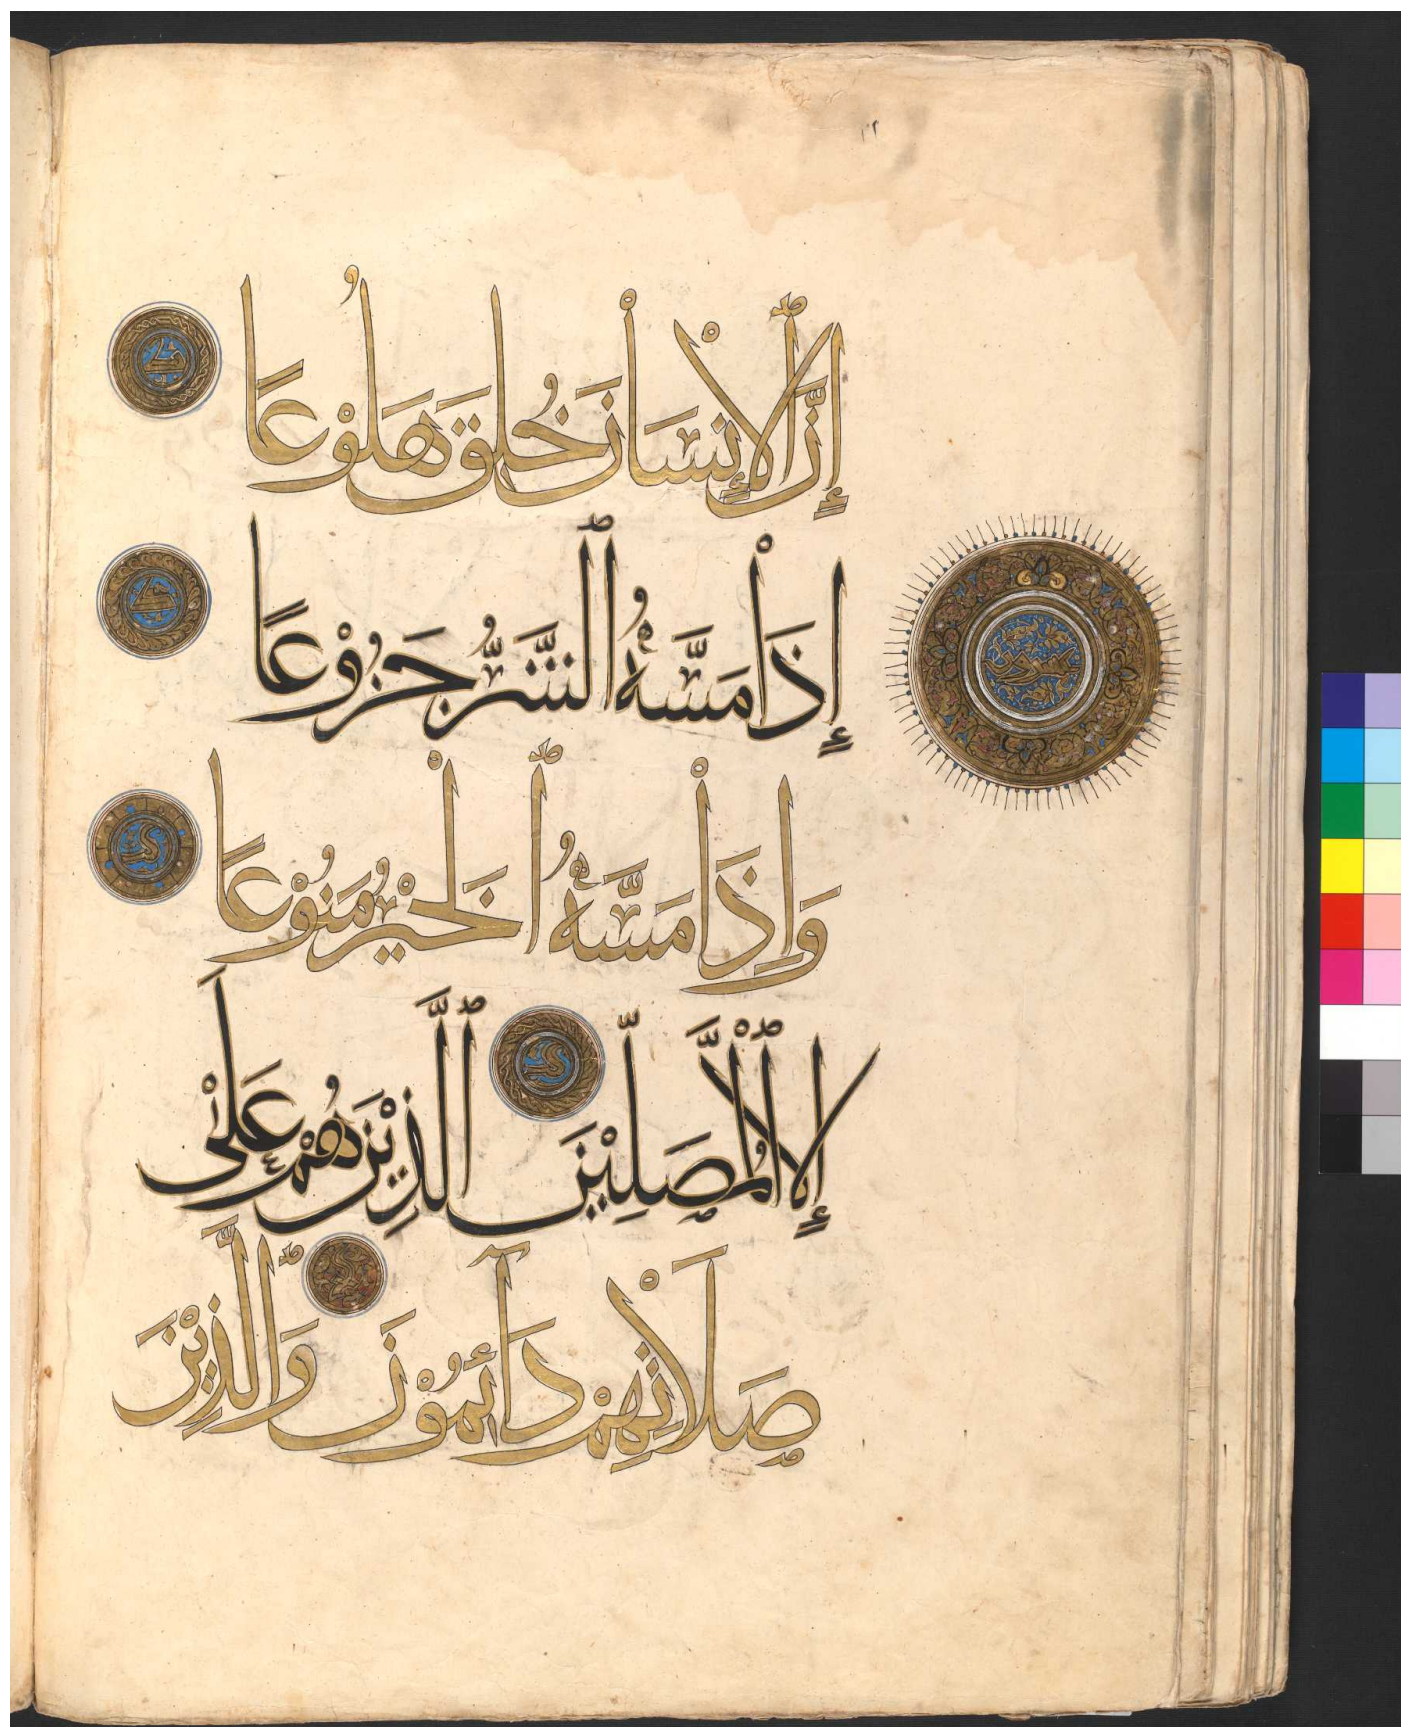 إِنَّ ٱلْإِنسَانَ خُلِقَ هَلُوْعًا
إِذَا مَسَّهُ ٱلشَّرُّ جَزُوْعًا
وَإِذَا مَسَّهُ ٱلْخَيْرُ مَنُوْعًا
إِلَّا ٱلْمُصَلِّيْنَ ٱلَّذِيْنَ هُمْ عَلَىٰ
صَلَاتِهِمْ دَآئِمُوْنَ وَٱلَّذِيْنَ